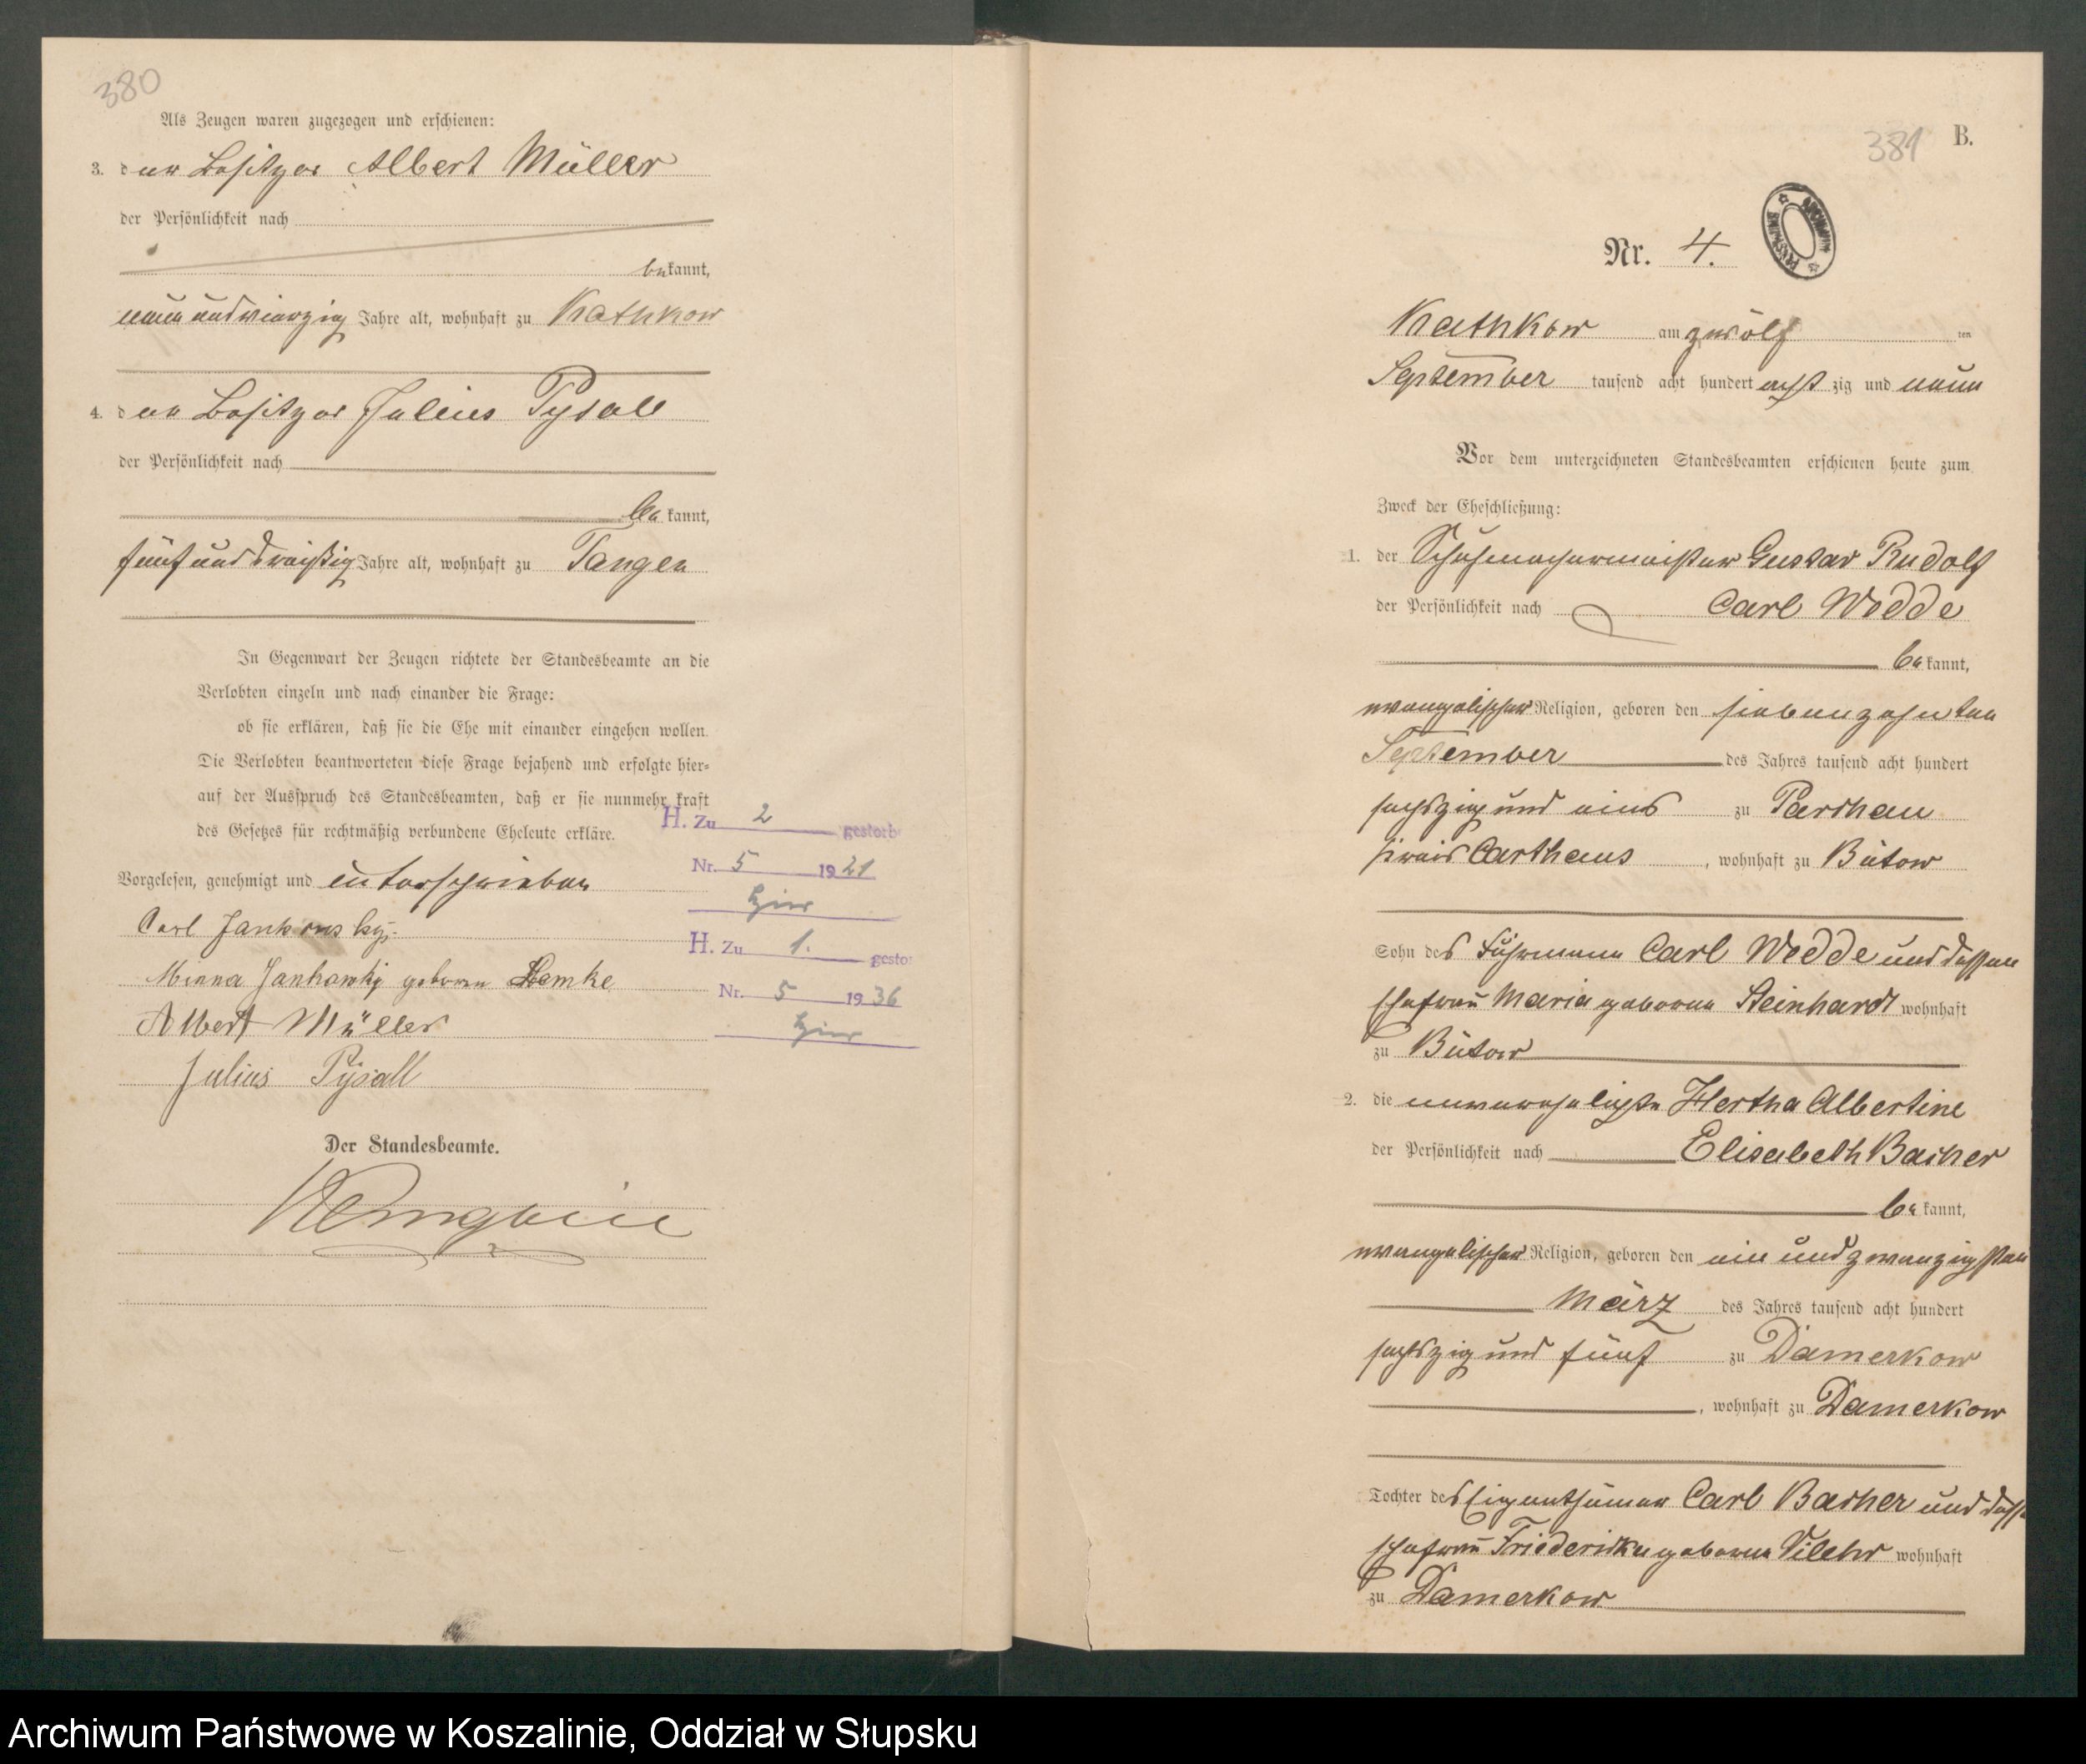 380
Als Zeugen waren zugezogen und erschienen:
3. der Besitzer Albert Müller
der Persönlichkeit nach
bekannt,
neunundvierzig Jahre alt, wohnhaft zu Kathkow
4. der Besitzer Julius Pysall
der Persönlichkeit nach
bekannt,
fünfunddreißig Jahre alt, wohnhaft zu Tangen
In Gegenwart der Zeugen richtete der Standesbeamte an die
Verlobten einzeln und nach einander die Frage:
ob sie erklären, daß sie die Ehe mit einander eingehen wollen.
Die Verlobten beantworteten diese Frage bejahend und erfolgte hier=
auf der Ausspruch des Standesbeamten, daß er sie nunmehr kraft
des Gesetzes für rechtmäßig verbundene Eheleute erkläre.
Vorgelesen, genehmigt und unterschrieben
Carl Jankowsky.
Minna Jankowsky geboren Lemke
Albert Müller
Julius Pysall
Der Standesbeamte.
H. Zu 2 gestorb
Nr. 5 1921
hier
H. Zu 1. gesto
Nr. 5 1936
hier
381 B.
Nr. 4.
Kathkow am zwölf ten
September tausend acht hundert acht zig und neun
Vor dem unterzeichneten Standesbeamten erschienen heute zum
Zweck der Eheschließung:
1. der Schuhmachermeister Gustav Rudolf
der Persönlichkeit nach Carl Wedde
bekannt,
evangelischer Religion, geboren den siebenzehnten
September des Jahres tausend acht hundert
sechszig und eins zu Parchau
Kreis Carthaus, wohnhaft zu Bütow
Sohn des Fuhrmann Carl Wedde und dessen
Ehefrau Maria geborene Steinhardt wohnhaft
zu Bütow
2. die unverehelichte Hertha Albertine
der Persönlichkeit nach Elisabeth Bacher
bekannt,
evangelischer Religion, geboren den ein und zwanzigsten
März des Jahres tausend acht hundert
sechszig und fünf zu Damerkow
, wohnhaft zu Damerkow
Tochter des Eigenthümer Carl Bacher und dessen
Ehefrau Friederike geborene wohnhaft
zu Damerkow
Archiwum Państwowe w Koszalinie, Oddział w Słupsku